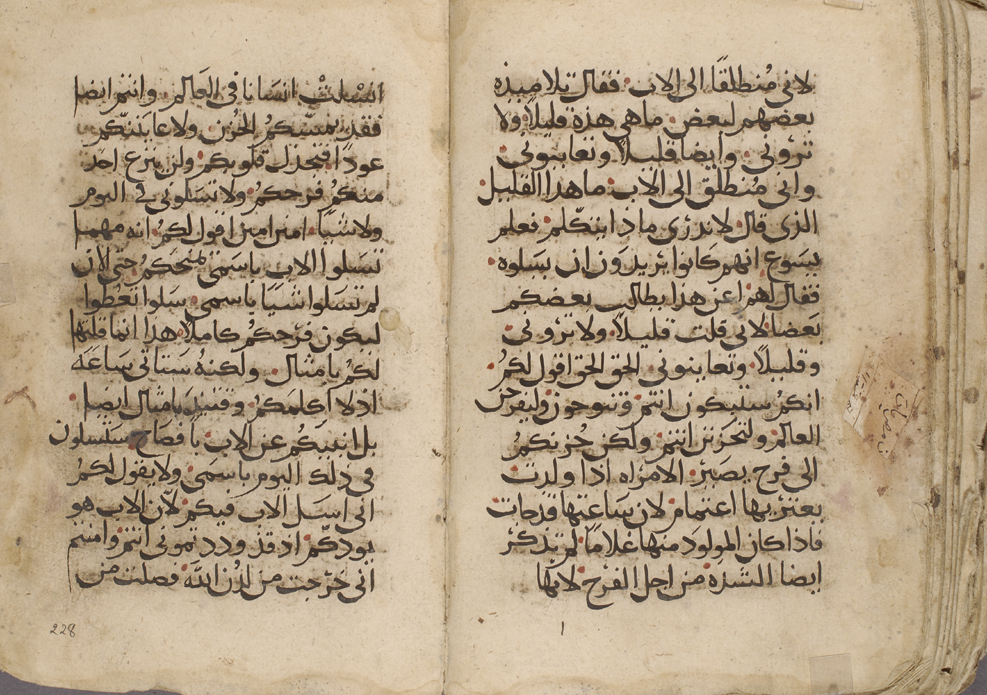 لاني مُنطلقًا الى الاب. فقال تلاميذه
بعضهم لبعض ما هي هذه قليلا ولا
تروني. وايضا قليلا وتعاينوني.
واني مُنطلق الى الاب. ما هذا القليل.
الذي قال. لا ندري ماذا يتكلم. فعلم
يسوع انهم كانوا يريدون ان يسلوه.
فقال لهم اعن هذا يطالب بعضكم
بعضا لاني قلت قليلًا. ولا تروني.
وقليلًا. وتعاينوني. الحق الحق اقول لكم.
انكم ستبكون انتم. وتنوحون وليفرحن
العالم. ولتحزنن انتم. ولكن حُزنكم
الى فرح يصير. الامراه اذا ولدت
يعتريها اغتمام. لان ساعتها قد جات
فاذا كان المولود منها غلامًا. لم تذكر
ايضا الشدة من اجل الفرح لانها
انسلت انسانا في العالم. وانتم ايضا
فقد يمسكم الحُزن. ولاعايننكم
عودًا فتجذل قلوبكم. ولن ينزع احد
منكم فرحكم ولا تسلوني في اليوم
ولا شيًا. امين امين اقول لكم. انه مهما
تسلوا الاب باسمي يمنحكم. حتى لان
لم تسلوا شيًا باسمي. سلوا تعطوا
ليكون فرحكم كاملًا. هذا انما قلتها
لكم بامثال. ولكنه ستاتي ساعه
اذ لا اكلمكم وقتيذ بامثال ايضا.
بل انبيكم عن الاب. بافصاح ستسلون
في ذلك اليوم باسمي. ولا يقول لكم
اني اسل الاب فيكم. لان الاب هو
يودكم. اذ قد وددتموني انتم وامنتم
اني خرجت من لدن الله. فصلت من
228